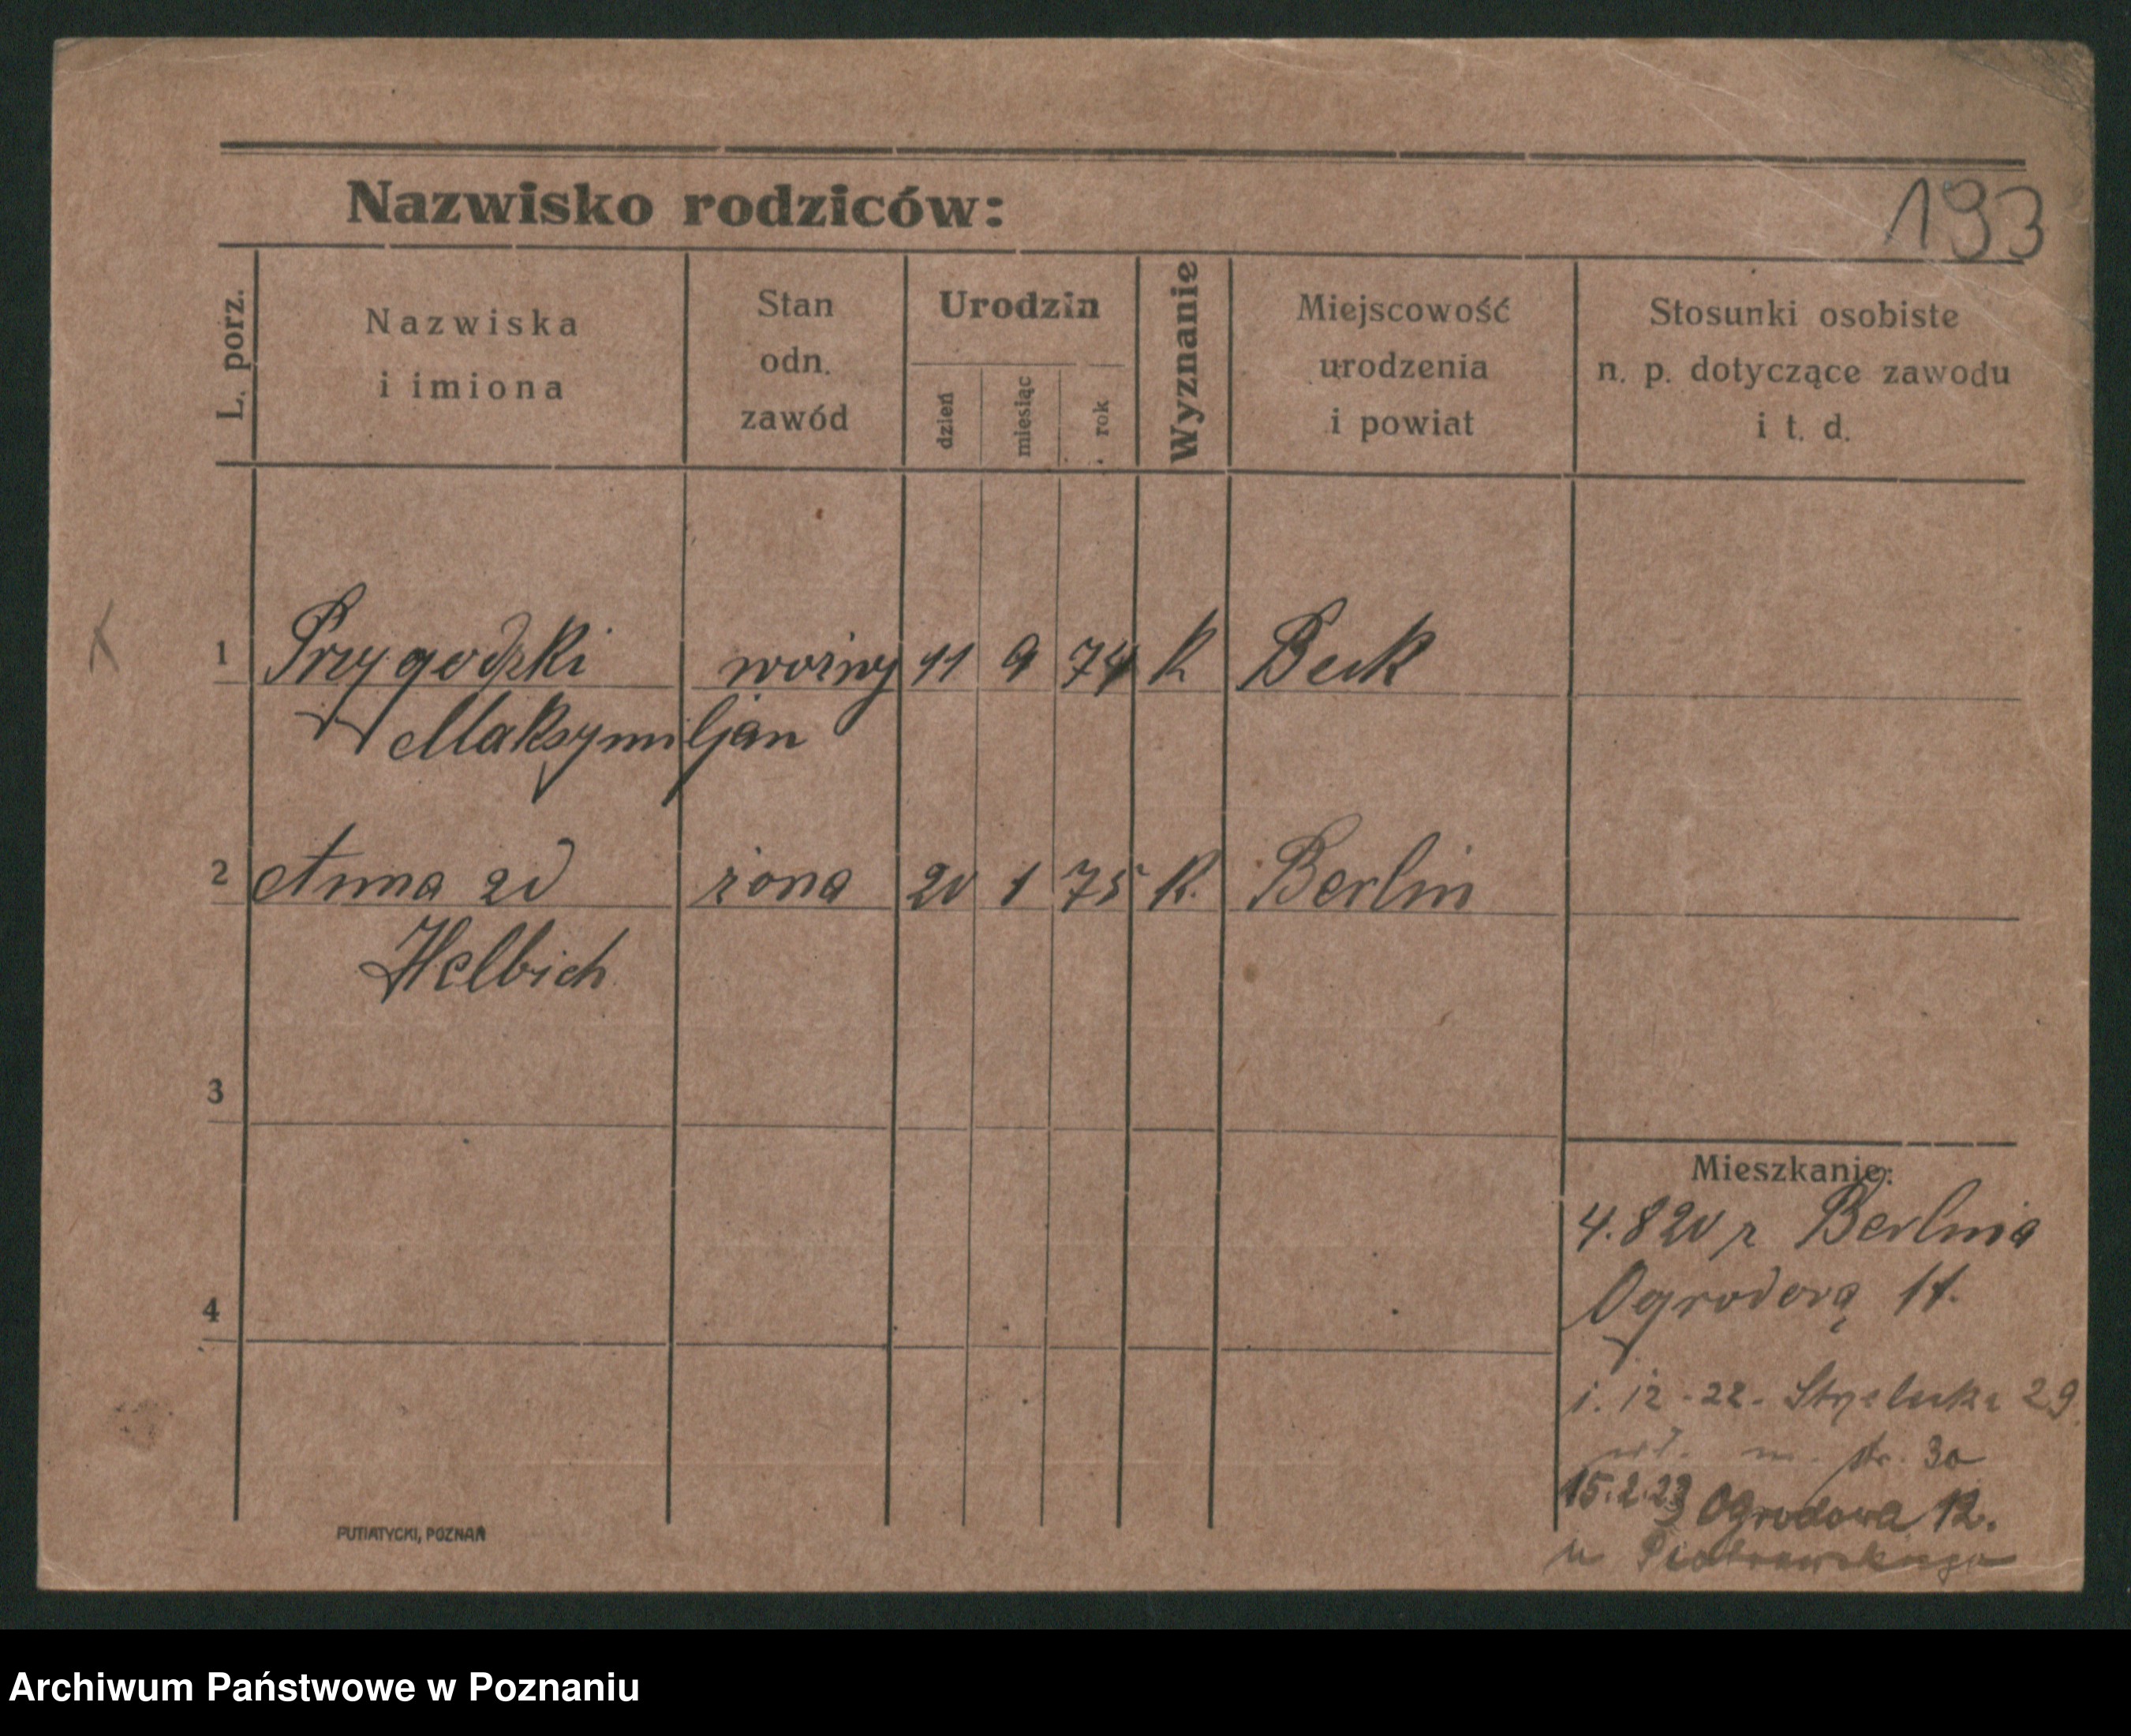 Nazwisko rodziców:
193
L. porz.
Nazwiska
i imiona
Stan
odn.
zawód
Urodzin
dzień
miesiąc
rok
Wyznanie
Miejscowość
urodzenia
i powiat
Stosunki osobiste
n. p. dotyczące zawodu
i t. d.
1 Przygodzki woźny 11 9 74 K Beck
Maksymiljan
2 Anna zd żona 20 1 75 K. Berlin
Helbich
3
4
Mieszkanie:
4.8 20 z Berlina
Ogrodową 11.
1. 12 - 22. Strzelecka 29.
str. 30
15.2.23 Ogrodowa 12.
u Piotrowskiego
PUTIATYCKI, POZNAŃ
Archiwum Państwowe w Poznaniu